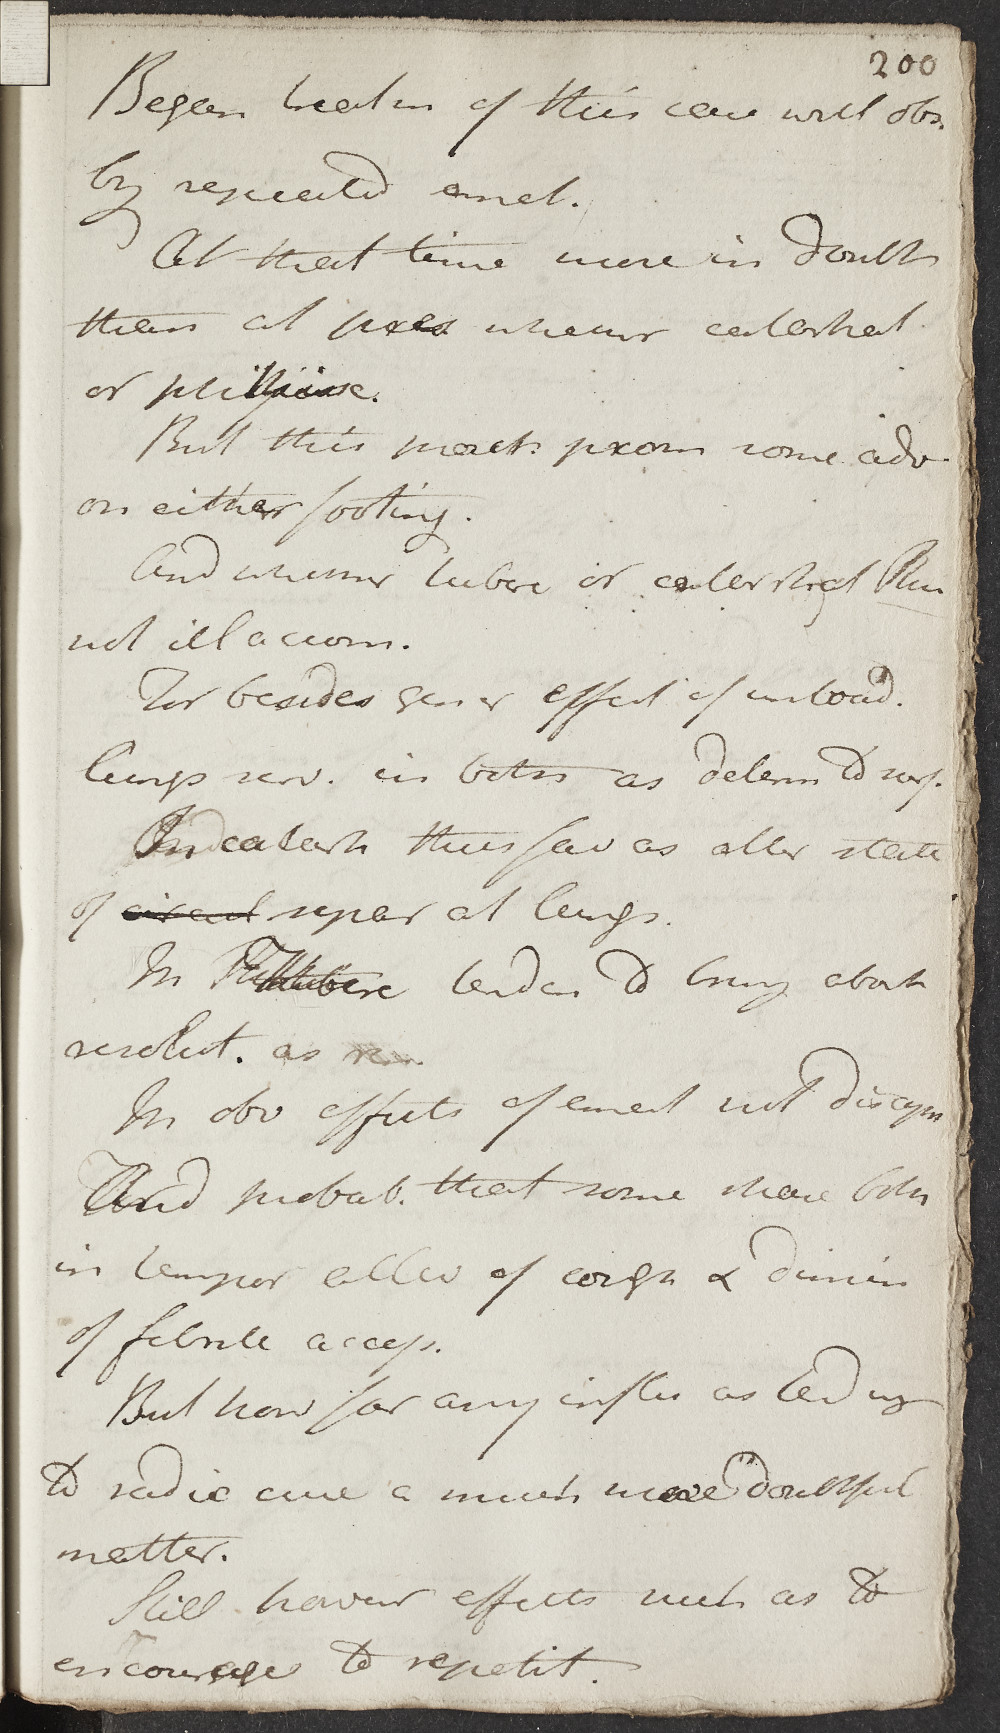 200
Began treatm of this case with obs.
by repeated emet.
At that time more in doubt
than at pres whether catarrhal
or phthisic.
But this pract. prom some adv
on either footing.
And whether tuberc or catarrhal
not ill accom.
For besides gener effect of unload.
lungs serv. in both as determ to surf.
In catarrh thus far as alter state
of circul repar at lungs.
In Tuberc tenden to bring about
resolut. as
In obv effects of emet not disapp
And probab. that some share both
in tempor allev of cough & dimin
of febrile access.
But how far any influ as tend
to radic cure a much more doubtful
matter.
Still howevr effects such as to
encourage to repetit.